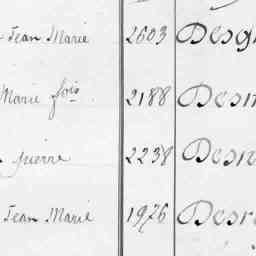 Jean Marie 2603 Desg
Marie fois 2188 Desm
pierre 2238 Desn
Jean Marie 1976 Desr